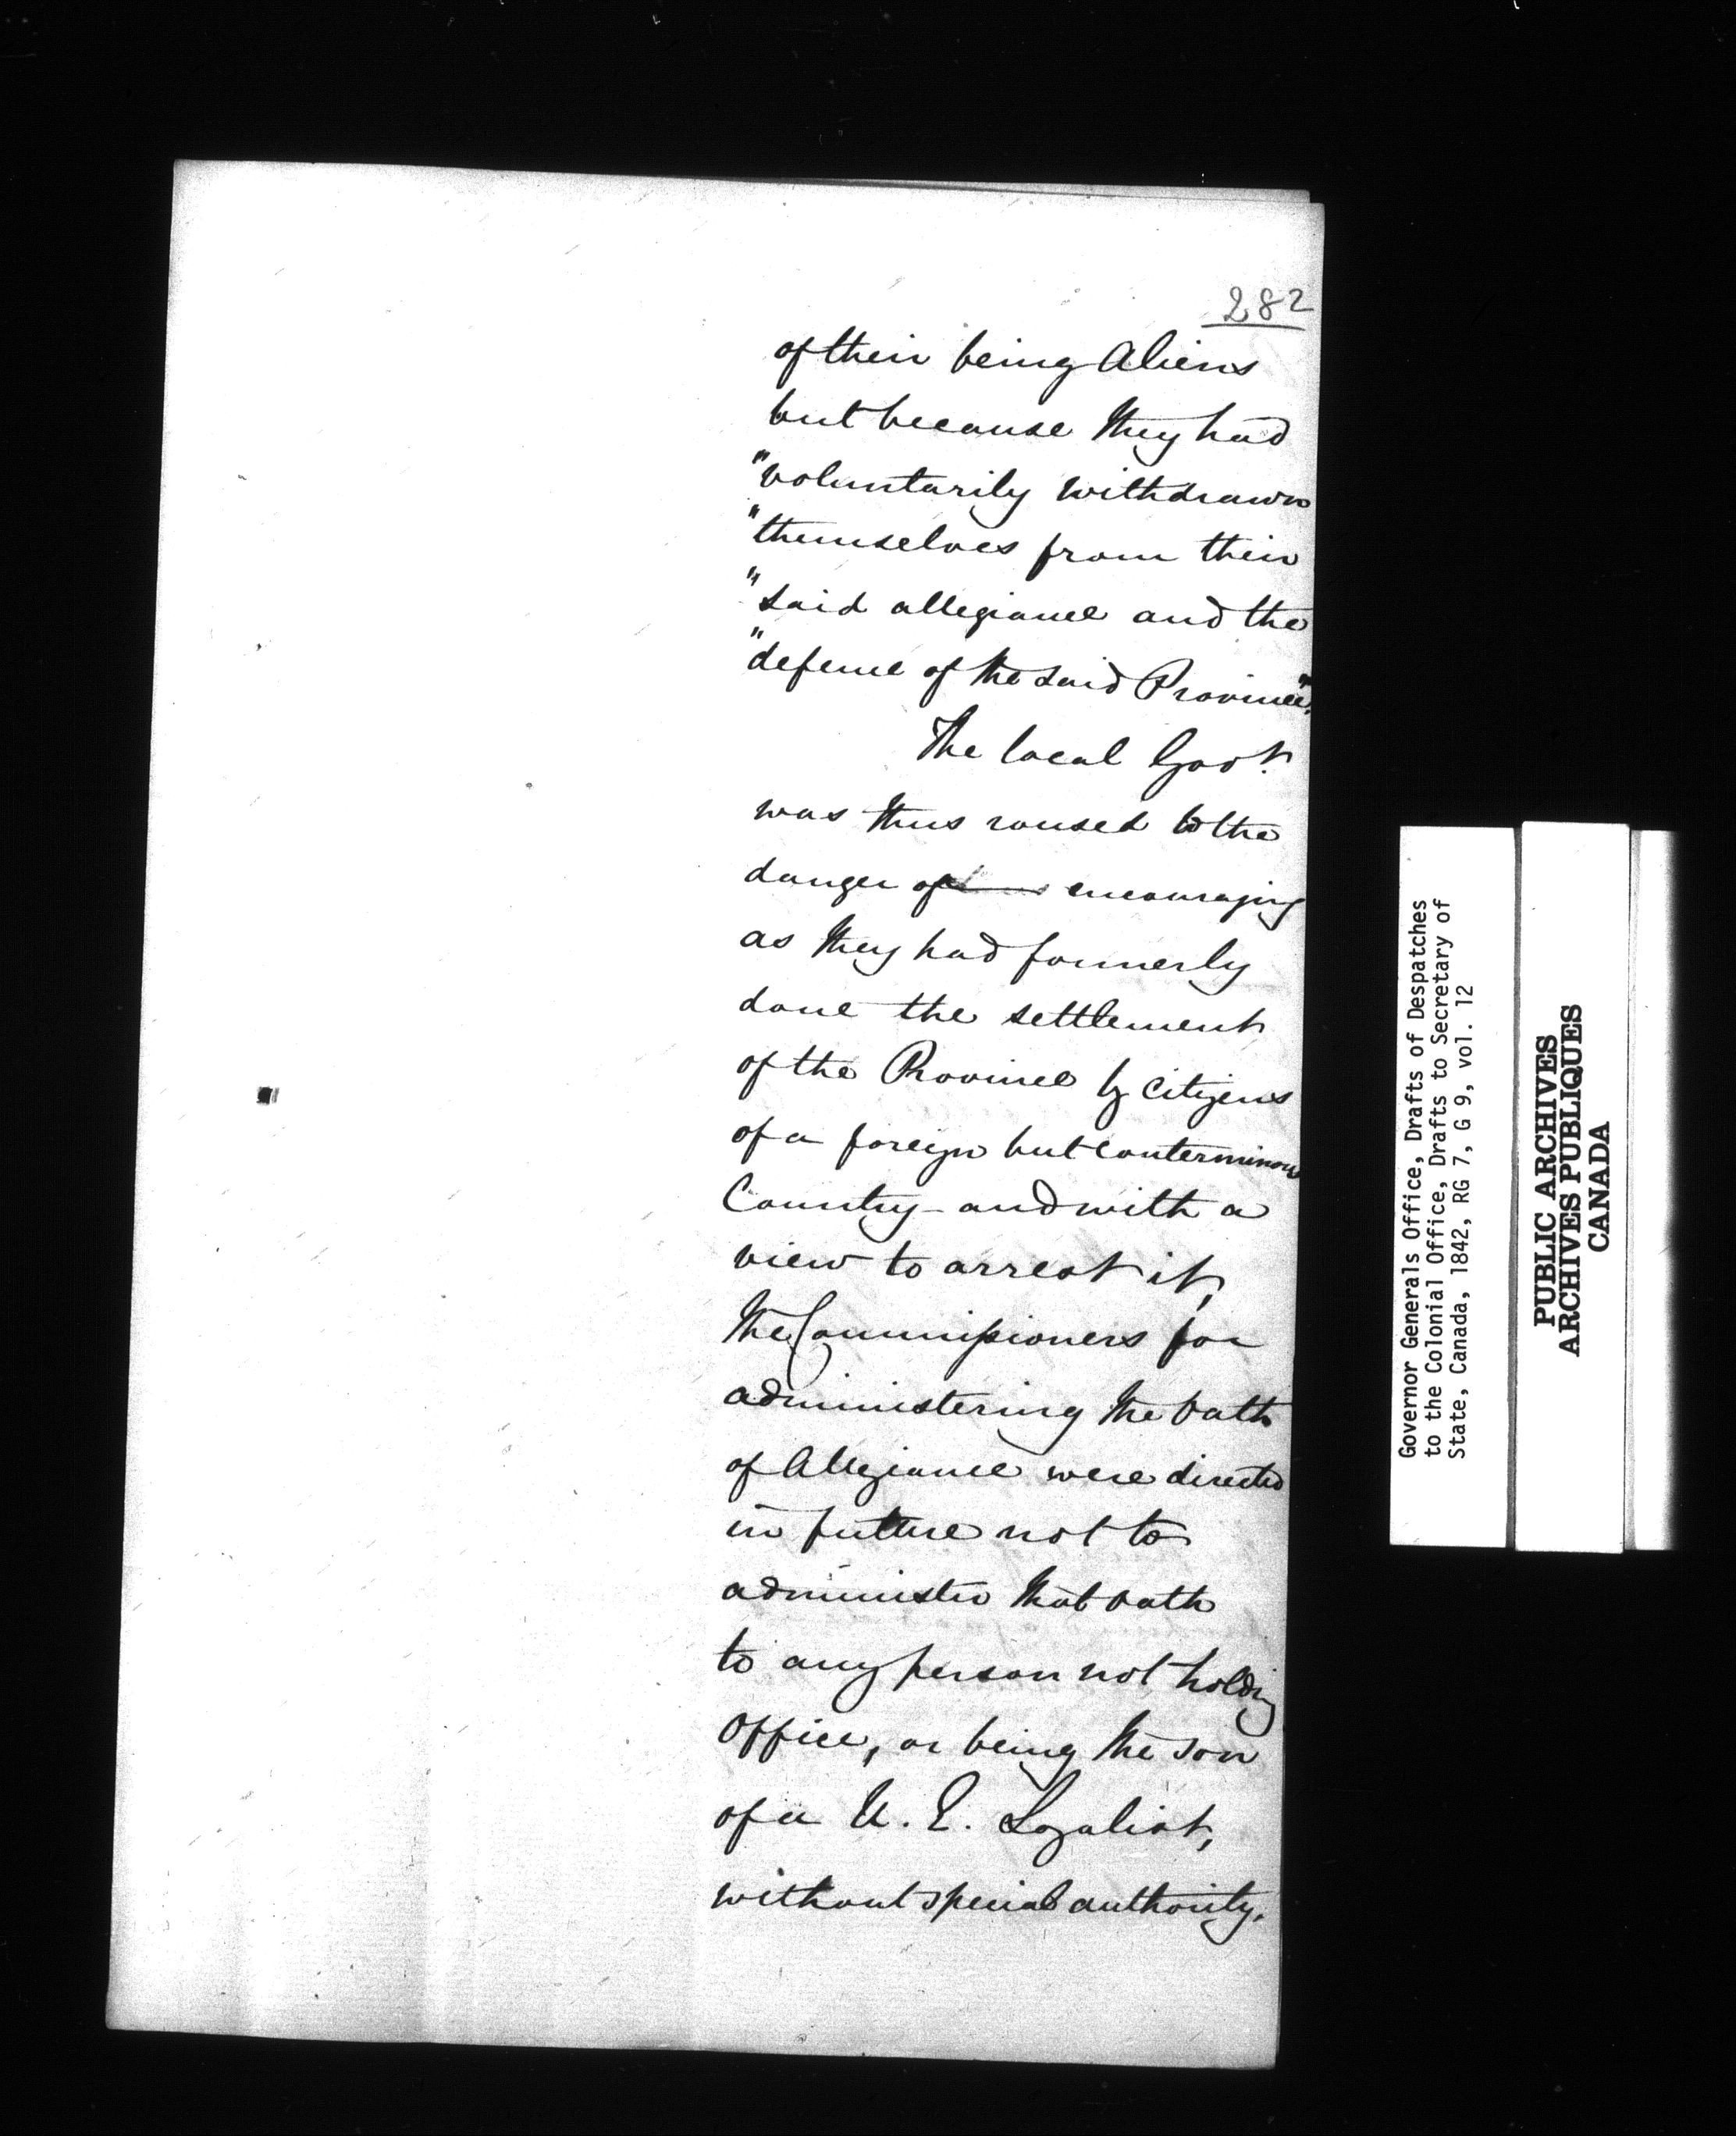 282
of their being Aliens
but because they had
"voluntarily withdrawn
"themselves from their
"said allegiance and the
"defence of the said Province".
The local Govt.
was thus roused to the
danger of encouraging
as they had formerly
done the settlement
of the Province by Citizens
of a foreign but conterminous
Country - and with a
view to arrest it,
the Commissioners for
administering the Oath
of Allegiance were directed
in future not to
administer that oath
to any person not holding
Office, or being the son
of a U. E. Loyalist,
without special authority.
Governor Generals Office, Drafts of Despatches
to the Colonial Office, Drafts to Secretary of
State, Canada, 1842, RG 7, G 9, vol. 12
PUBLIC ARCHIVES
ARCHIVES PUBLIQUES
CANADA